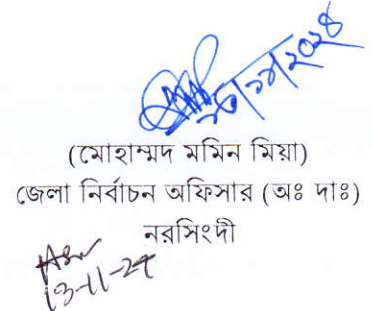 ১৩/১১/২০২৪
(মোহাম্মদ মমিন মিয়া)
জেলা নির্বাচন অফিসার (অঃ দাঃ)
নরসিংদী
13-11-24